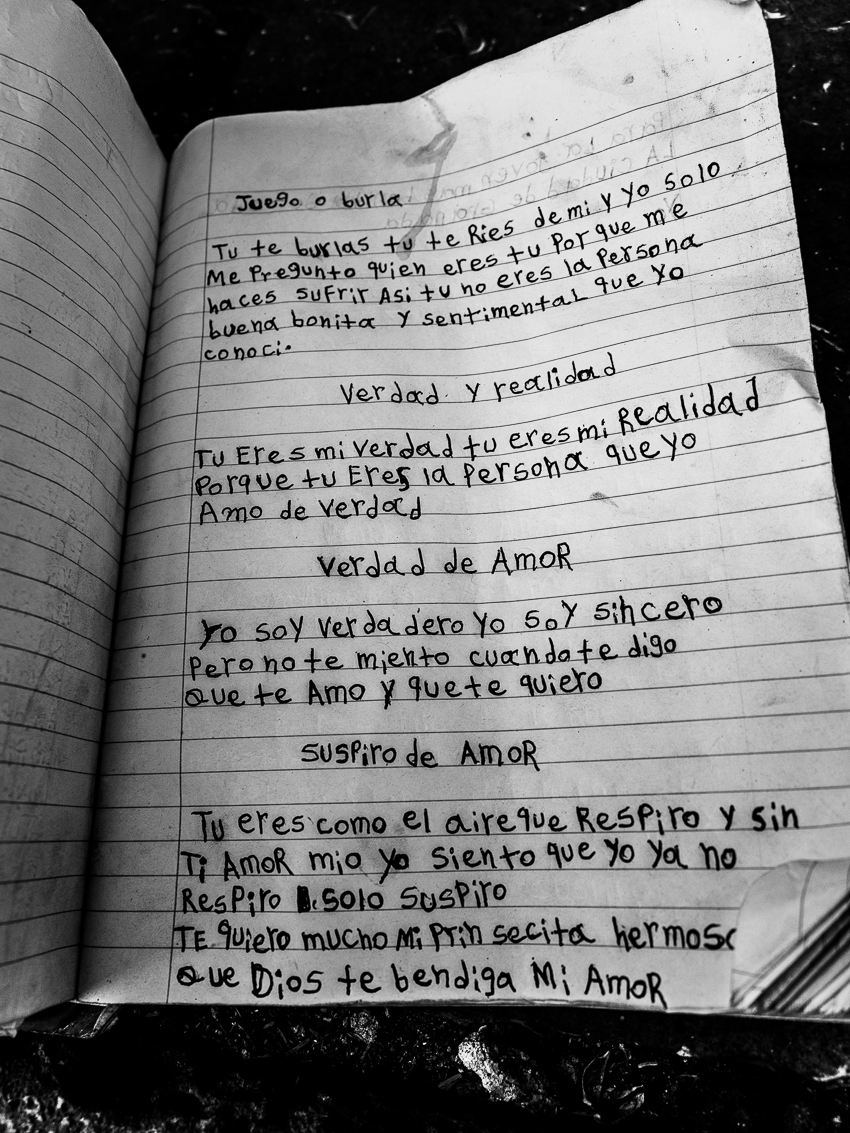 Juego o burla
Tu te burlas tu te Ries de mi y yo solo
Me Pregunto quien eres tu Por que me
haces sufrir Asi tu no eres la Persona
buena bonita y sentimental que yo
conoci.
Verdad y realidad
Tu Eres mi verdad tu eres mi Realidad
Porque tu Eres la Persona que yo
Amo de verdad
Verdad de AmoR
Yo soy verdadero yo soy sincero
Pero no te miento cuando te digo
Que te Amo y que te quiero
SUSPiro de AmoR
Tu eres como el aire que ResPiro y sin
Ti AmoR mio yo siento que yo ya no
ResPiro . solo SusPiro
TE quiero mucho Mi Prin secita hermosa
Que Dios te bendiga Mi AmoR